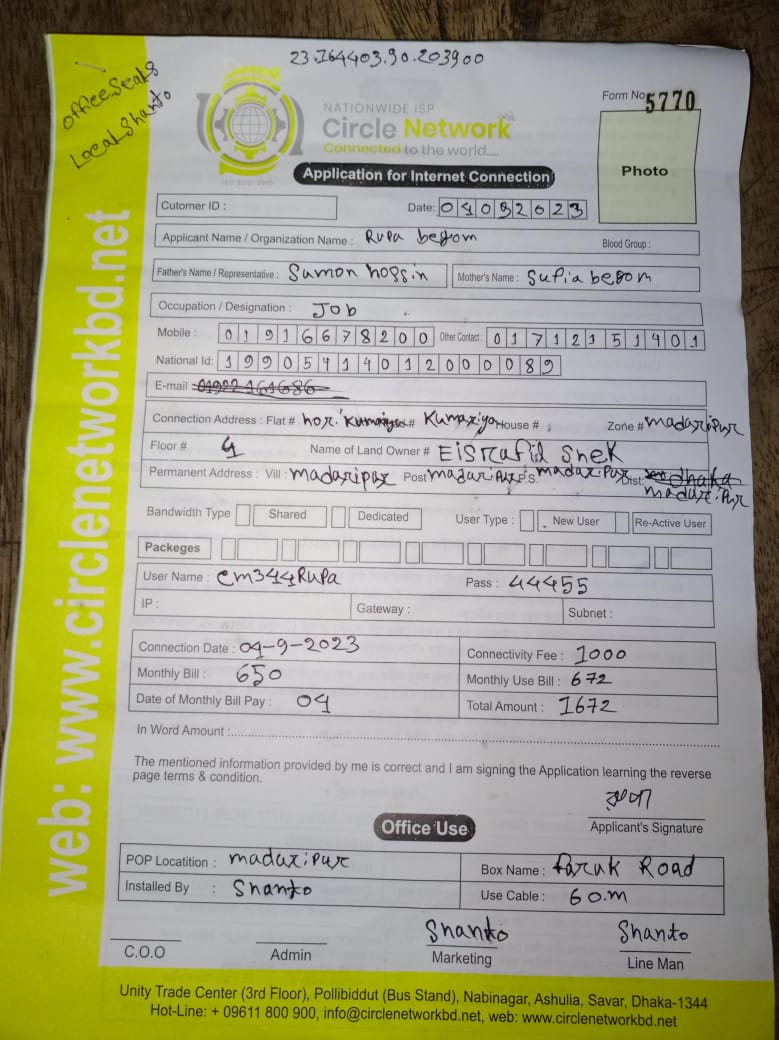 23.164403.90.203900
office seats
Local Shanto
NATIONWIDE ISP
Circle Network
Connected to the world.....
ISO 9001:2015
Form No 5770
Photo
Application for Internet Connection
Cutomer ID :
Date: 04092023
Applicant Name / Organization Name : Rupa begom
Blood Group :
Father's Name / Representative : Sumon hossin
Mother's Name : Sufia begom
Occupation / Designation : Job
Mobile : 01916678200
Other Contact : 01712151401
National Id: 19905414012000089
E-mail 01922161686
Connection Address : Flat # hor. Kumariya House # Zone # madaripur
Floor # 4 Name of Land Owner # Eisrafil Shek
Permanent Address : Vill : madaripur Post madaripur P.S. madaripur Dist: dhaka
madaripur
Bandwidth Type Shared Dedicated User Type : New User Re-Active User
Packeges
User Name : cm344Rupa Pass : 44455
IP : Gateway : Subnet :
Connection Date : 04-9-2023 Connectivity Fee : 1000
Monthly Bill : 650 Monthly Use Bill : 672
Date of Monthly Bill Pay : 04 Total Amount : 1672
In Word Amount :
The mentioned information provided by me is correct and I am signing the Application learning the reverse
page terms & condition.
রুপা
Applicant's Signature
Office Use
POP Locatition : madaripur Box Name : faruk Road
Installed By : Shanto Use Cable : 60.m
Shanto Shanto
C.O.O Admin Marketing Line Man
Unity Trade Center (3rd Floor), Pollibiddut (Bus Stand), Nabinagar, Ashulia, Savar, Dhaka-1344
Hot-Line: + 09611 800 900, info@circlenetworkbd.net, web: www.circlenetworkbd.net
web: www.circlenetworkbd.net